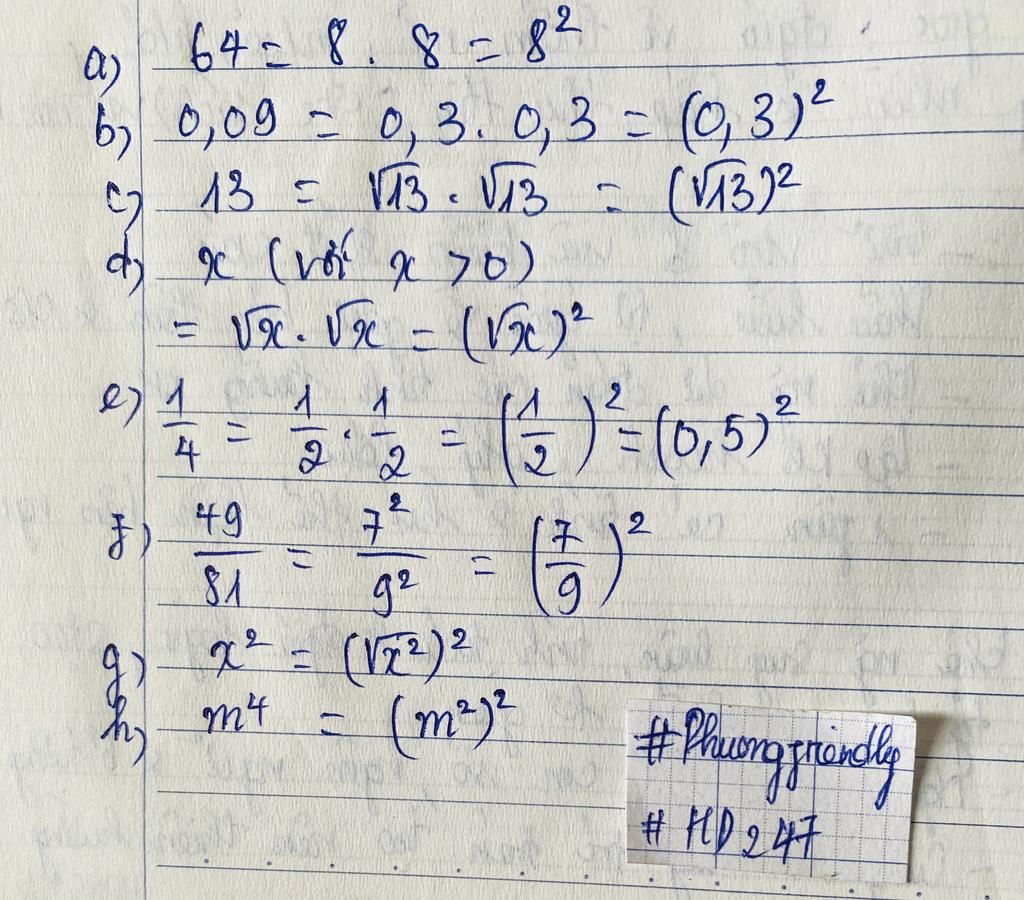 a) 64 = 8 . 8 = 8²
b) 0,09 = 0,3 . 0,3 = (0,3)²
c) 13 = √13 . √13 = (√13)²
d) x (với x > 0)
= √x . √x = (√x)²
e) 1/4 = 1/2 . 1/2 = (1/2)² = (0,5)²
f) 49/81 = 7²/9² = (7/9)²
g) x² = (√x²)²
h) m⁴ = (m²)²
#Phuongfriendly
# HD247